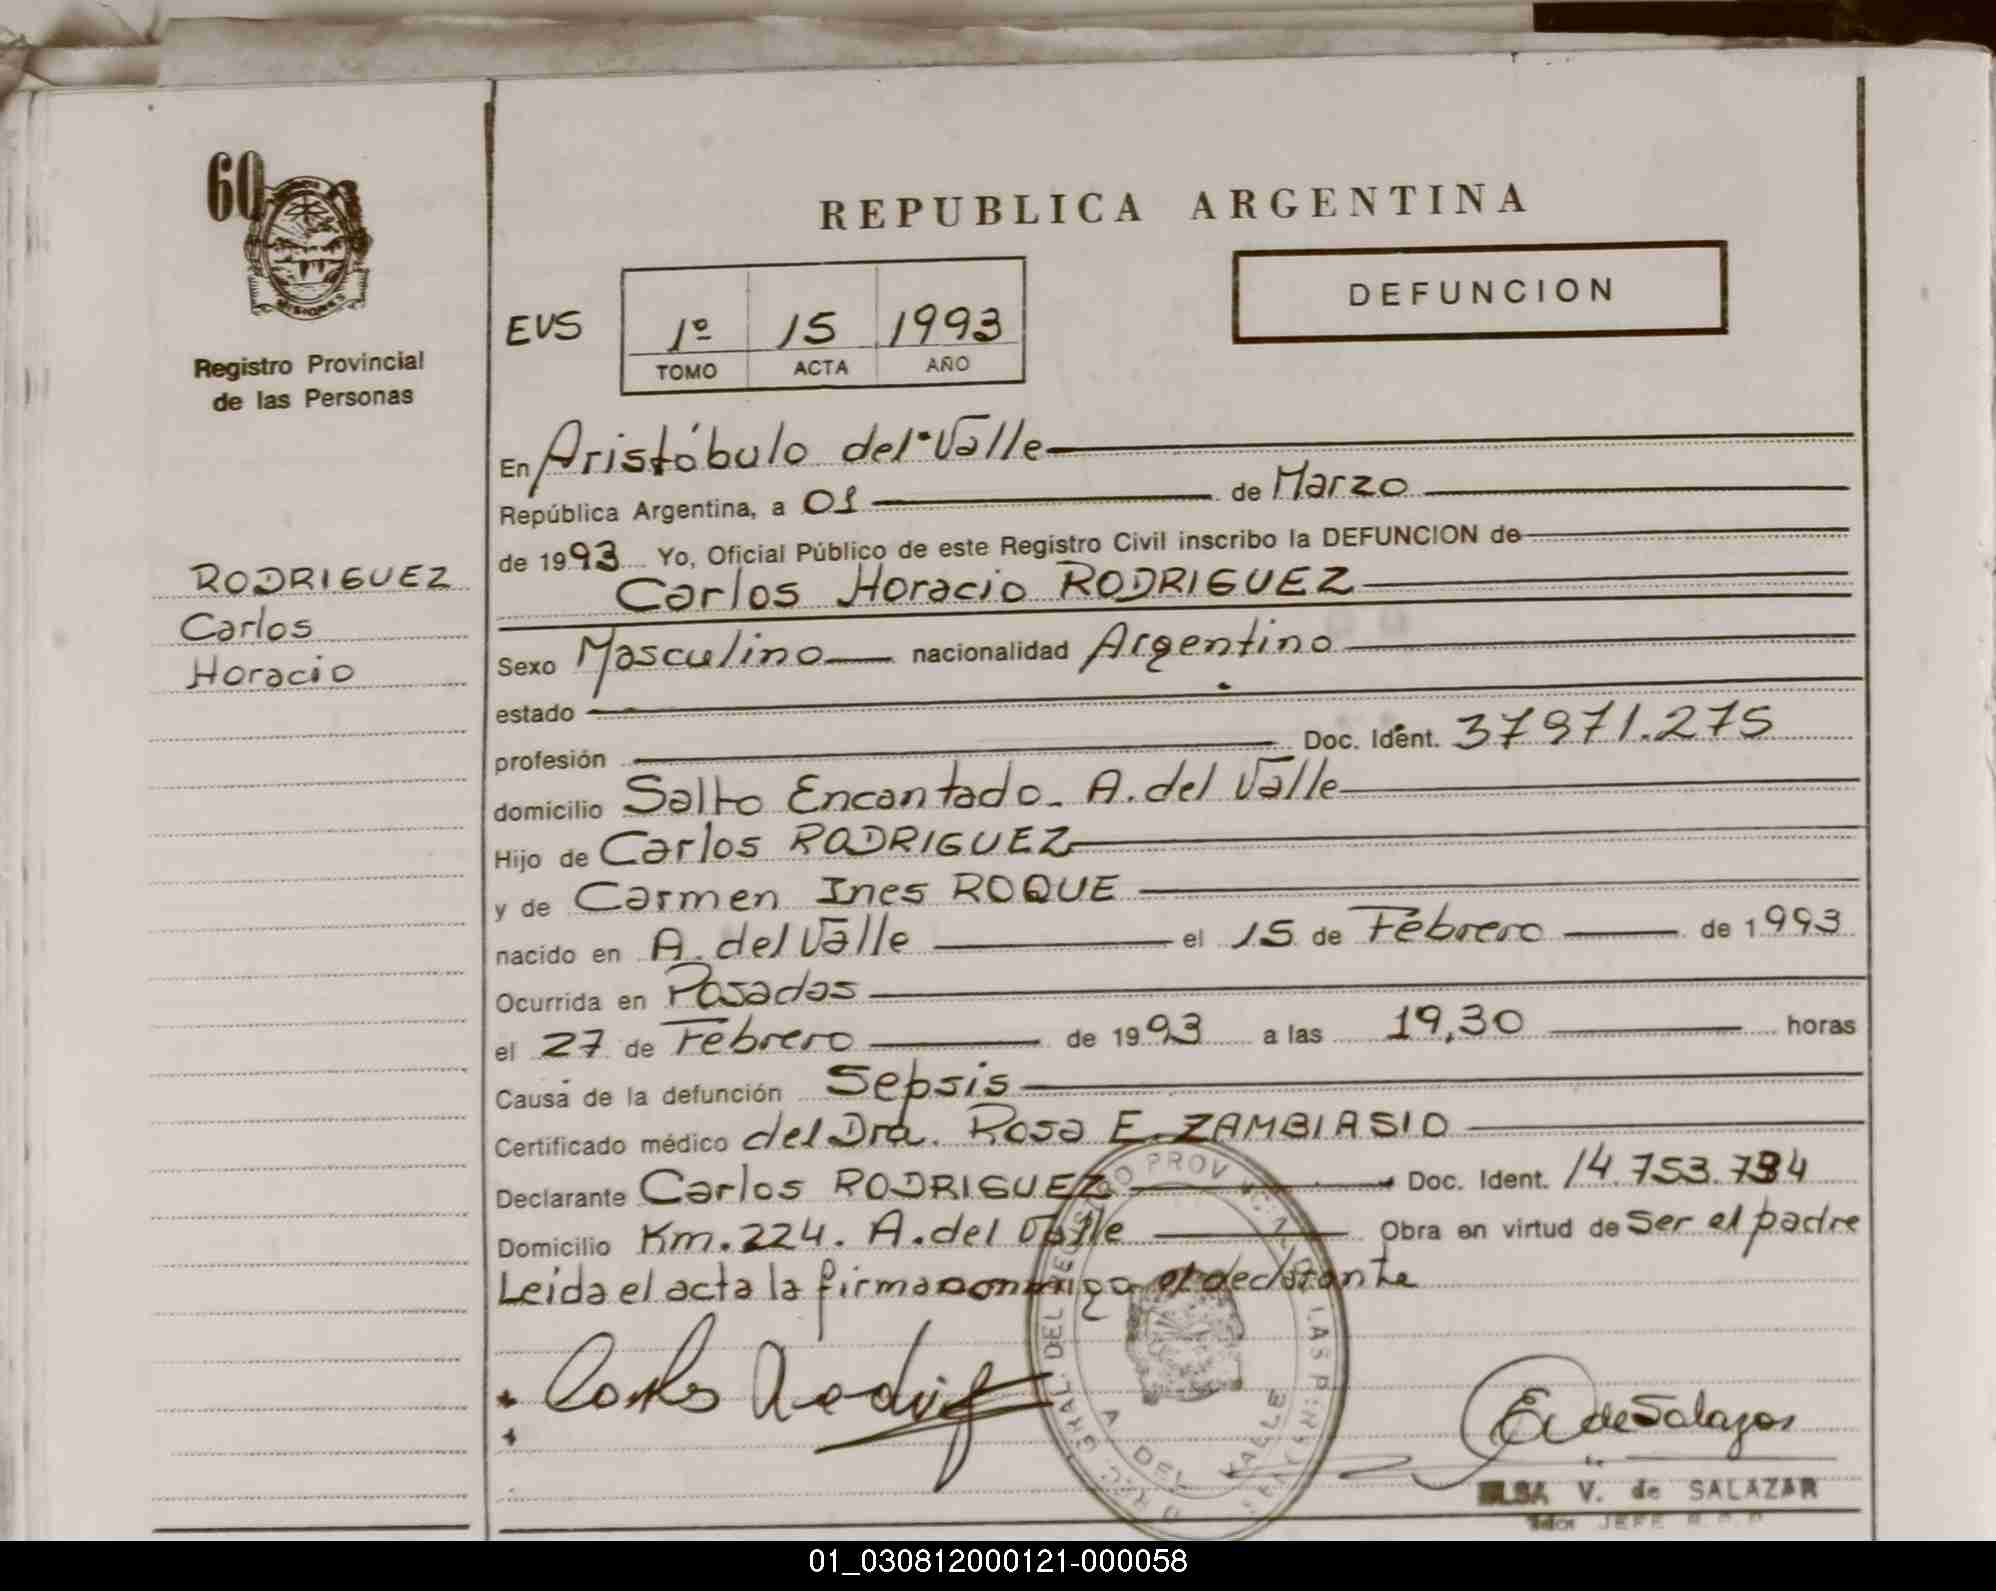 60
MISIONES
Registro Provincial
de las Personas
RODRIGUEZ
Carlos
Horacio
REPUBLICA ARGENTINA
DEFUNCION
EVS
1º 15 1993
TOMO ACTA AÑO
En Aristóbulo del Valle
República Argentina, a 01 de Marzo
de 1993 Yo, Oficial Público de este Registro Civil inscribo la DEFUNCION de
Carlos Horacio RODRIGUEZ
Sexo Masculino nacionalidad Argentino
estado
profesión Doc. Ident. 37971.275
domicilio Salto Encantado. A. del Valle
Hijo de Carlos RODRIGUEZ
y de Carmen Ines ROQUE
nacido en A. del Valle el 15 de Febrero de 1993
Ocurrida en Posadas
el 27 de Febrero de 1993 a las 19,30 horas
Causa de la defunción Sepsis
Certificado médico del Dra. Rosa E. ZAMBIASIO
Declarante Carlos RODRIGUEZ Doc. Ident. 14.753.794
Domicilio Km. 224. A. del Valle Obra en virtud de ser el padre
Leida el acta la firma conmigo el declarante
Carlos Rodrig
E de Salazar
A. DEL VALLE
ELSA V. de SALAZAR
JEFE
01_030812000121-000058